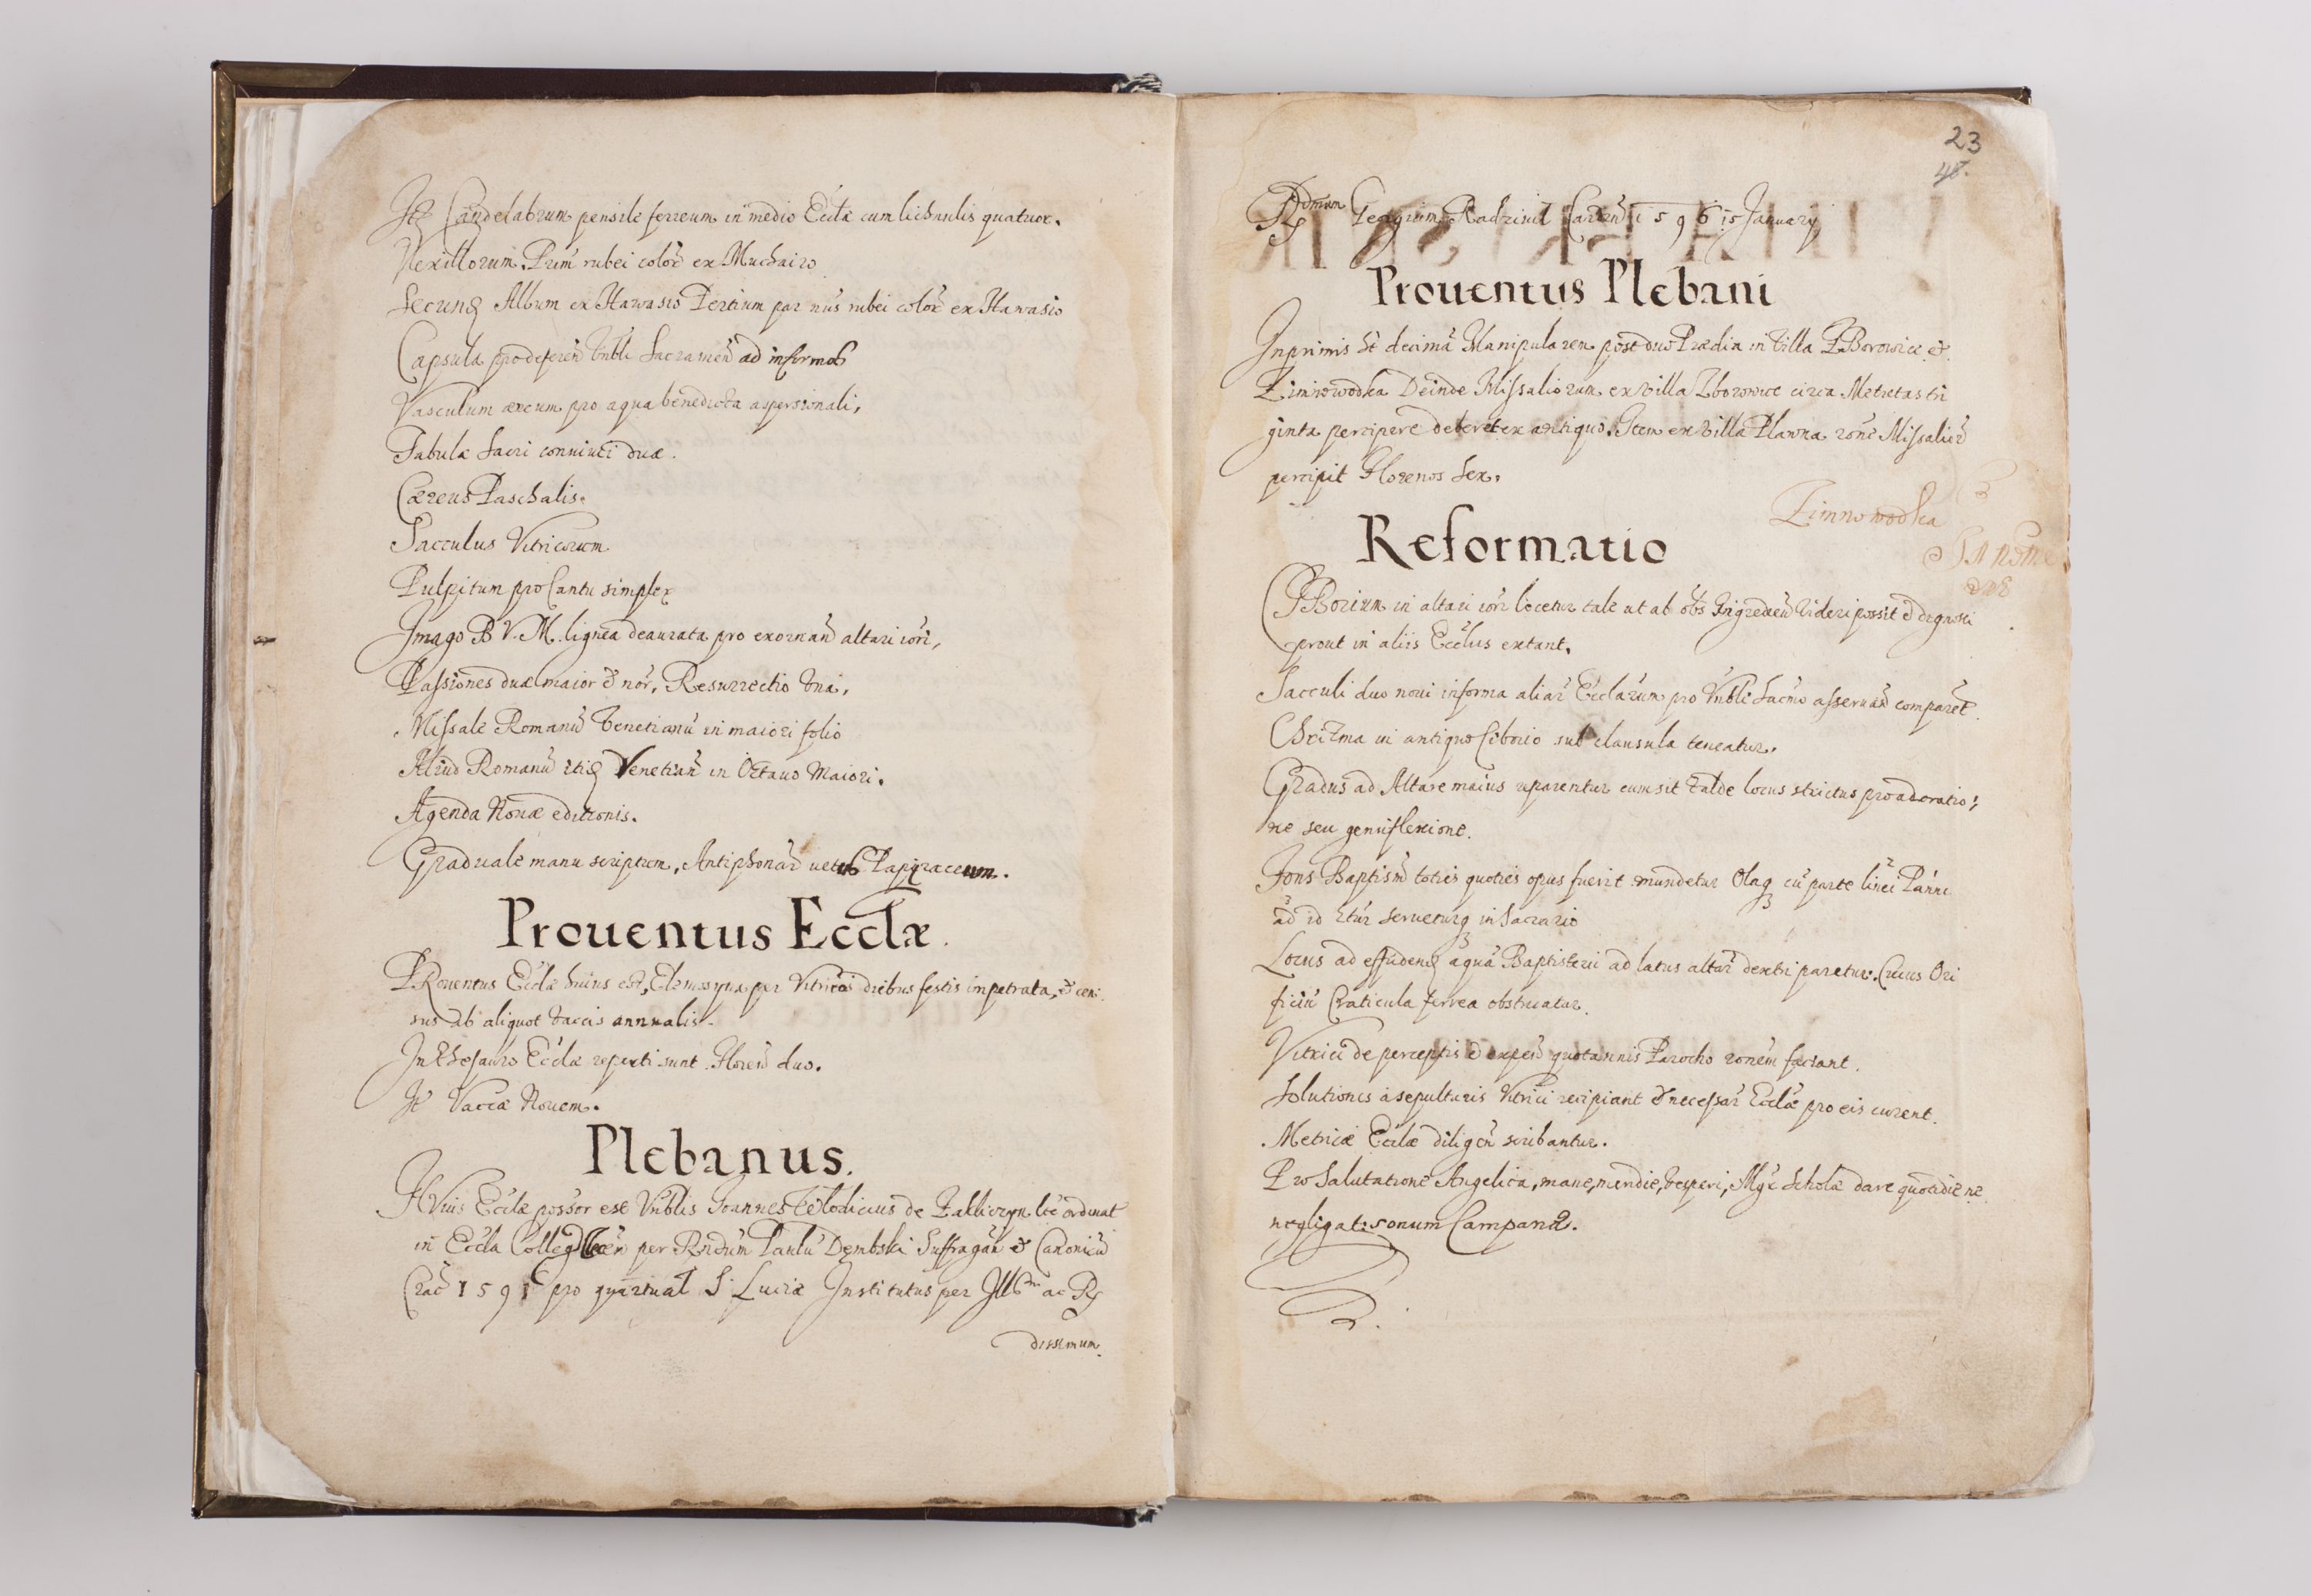 Itē Candelabrum pensile ferreum in medio Eccłæ cum lichnulis quatuor.
Vexillorum. Prim̄ rubei color̄ ex Muchairo
Secunđ Album ex Harasio Tertium par nūs rubei color̄ ex Harasio
Capsula pro deferen̄ Vnbli Sacramen̄ ad infirmos
Vasculum æreum pro aqua benedicta aspersionali,
Tabulæ Sacri conuiuii duæ.
Cæreus Paschalis.
Sacculus Vitricorum
Pulpitum pro Cantu simplex
Imago B V. M. lignea deaurata pro exornan̄ altari iori,
Passiones duæ maior & nor̄, Resurrectio Dnai,
Missale Romanū Venetianū in maiori folio
Aliud Romanū itiđ Venetian̄ in Octauo Maiori.
Agenda Nouæ editionis.
Graduale manu scriptum, Antiphonar̄ uetus Papyraceum.
Prouentus Eccłæ.
PRouentus Eccłæ huius est, Elemosyna per Vitricos diebus festis impetrata, & cen:
sus ab aliquot Vaccis annualis.
In Thesauro Eccłæ reperti sunt Floren̄ duo.
It̄ Vaccæ Nouem.
Plebanus.
HVius Eccłæ possor est Vnblis Joannes de Zakliczyn loci ordinat
in Eccła Colleg per Rndum Paulū Dembski Suffragan̄ & Canonicū
Crac̄ 1591 pro quartual S. Luciæ Institutus per Illsm ac R
dissimum.
23
48.
Dnum Georgium Radziuil Cardin̄ 1596 15 January
Prouentus Plebani
Inprimis ht̄ decimā Manipularem post duo Prædia in Villa Borowice &
Zimnowodka Deinde Missaliorum ex villa Zborowice circa Metretas tri
ginta percipere deberet ex antiquo. Item ex Villa Plawna rōne Missaliū
percipit Florenos Sex.
Zimnowodka
Reformatio
CIBorium in altari iori locetur tale ut ab oibs Ingredien̄ Videri possit & dignosci
prout in aliis Eccłiis extant.
Sacculi duo noui in forma aliar̄ Eccłarum pro Vnbli Sacrmo asseruan̄ comparet.
Chrizma in antiquo Ciborio sub clausula teneatur.
Gradus ad Altare maius reparentur cum sit valde locus strictus pro adoratio:
ne seu genuflexione.
Fons Baptism̄ toties quoties opus fuerit mundetur Olaq cū parte linei Panni
ad id Vtūr Serueturq in Sacrario
Locus ad effūdenđ aquā Baptisterii ad latus altar̄ dextri paretur. Cuius Ori
ficiū Craticula ferrea obstruatur.
Vitrici de perceptis & expen̄ quotannis Parocho ronem faciant.
Solutiones a sepulturis Vitrici recipiant & necessar̄ Eccłæ pro eis curent.
Metricæ Eccłæ diligen̄ scribantur.
Pro Salutatione Angelica, mane, meridie, Vesperi, Mgr Scholæ dare quotidie ne
negligat: sonum Campanæ.